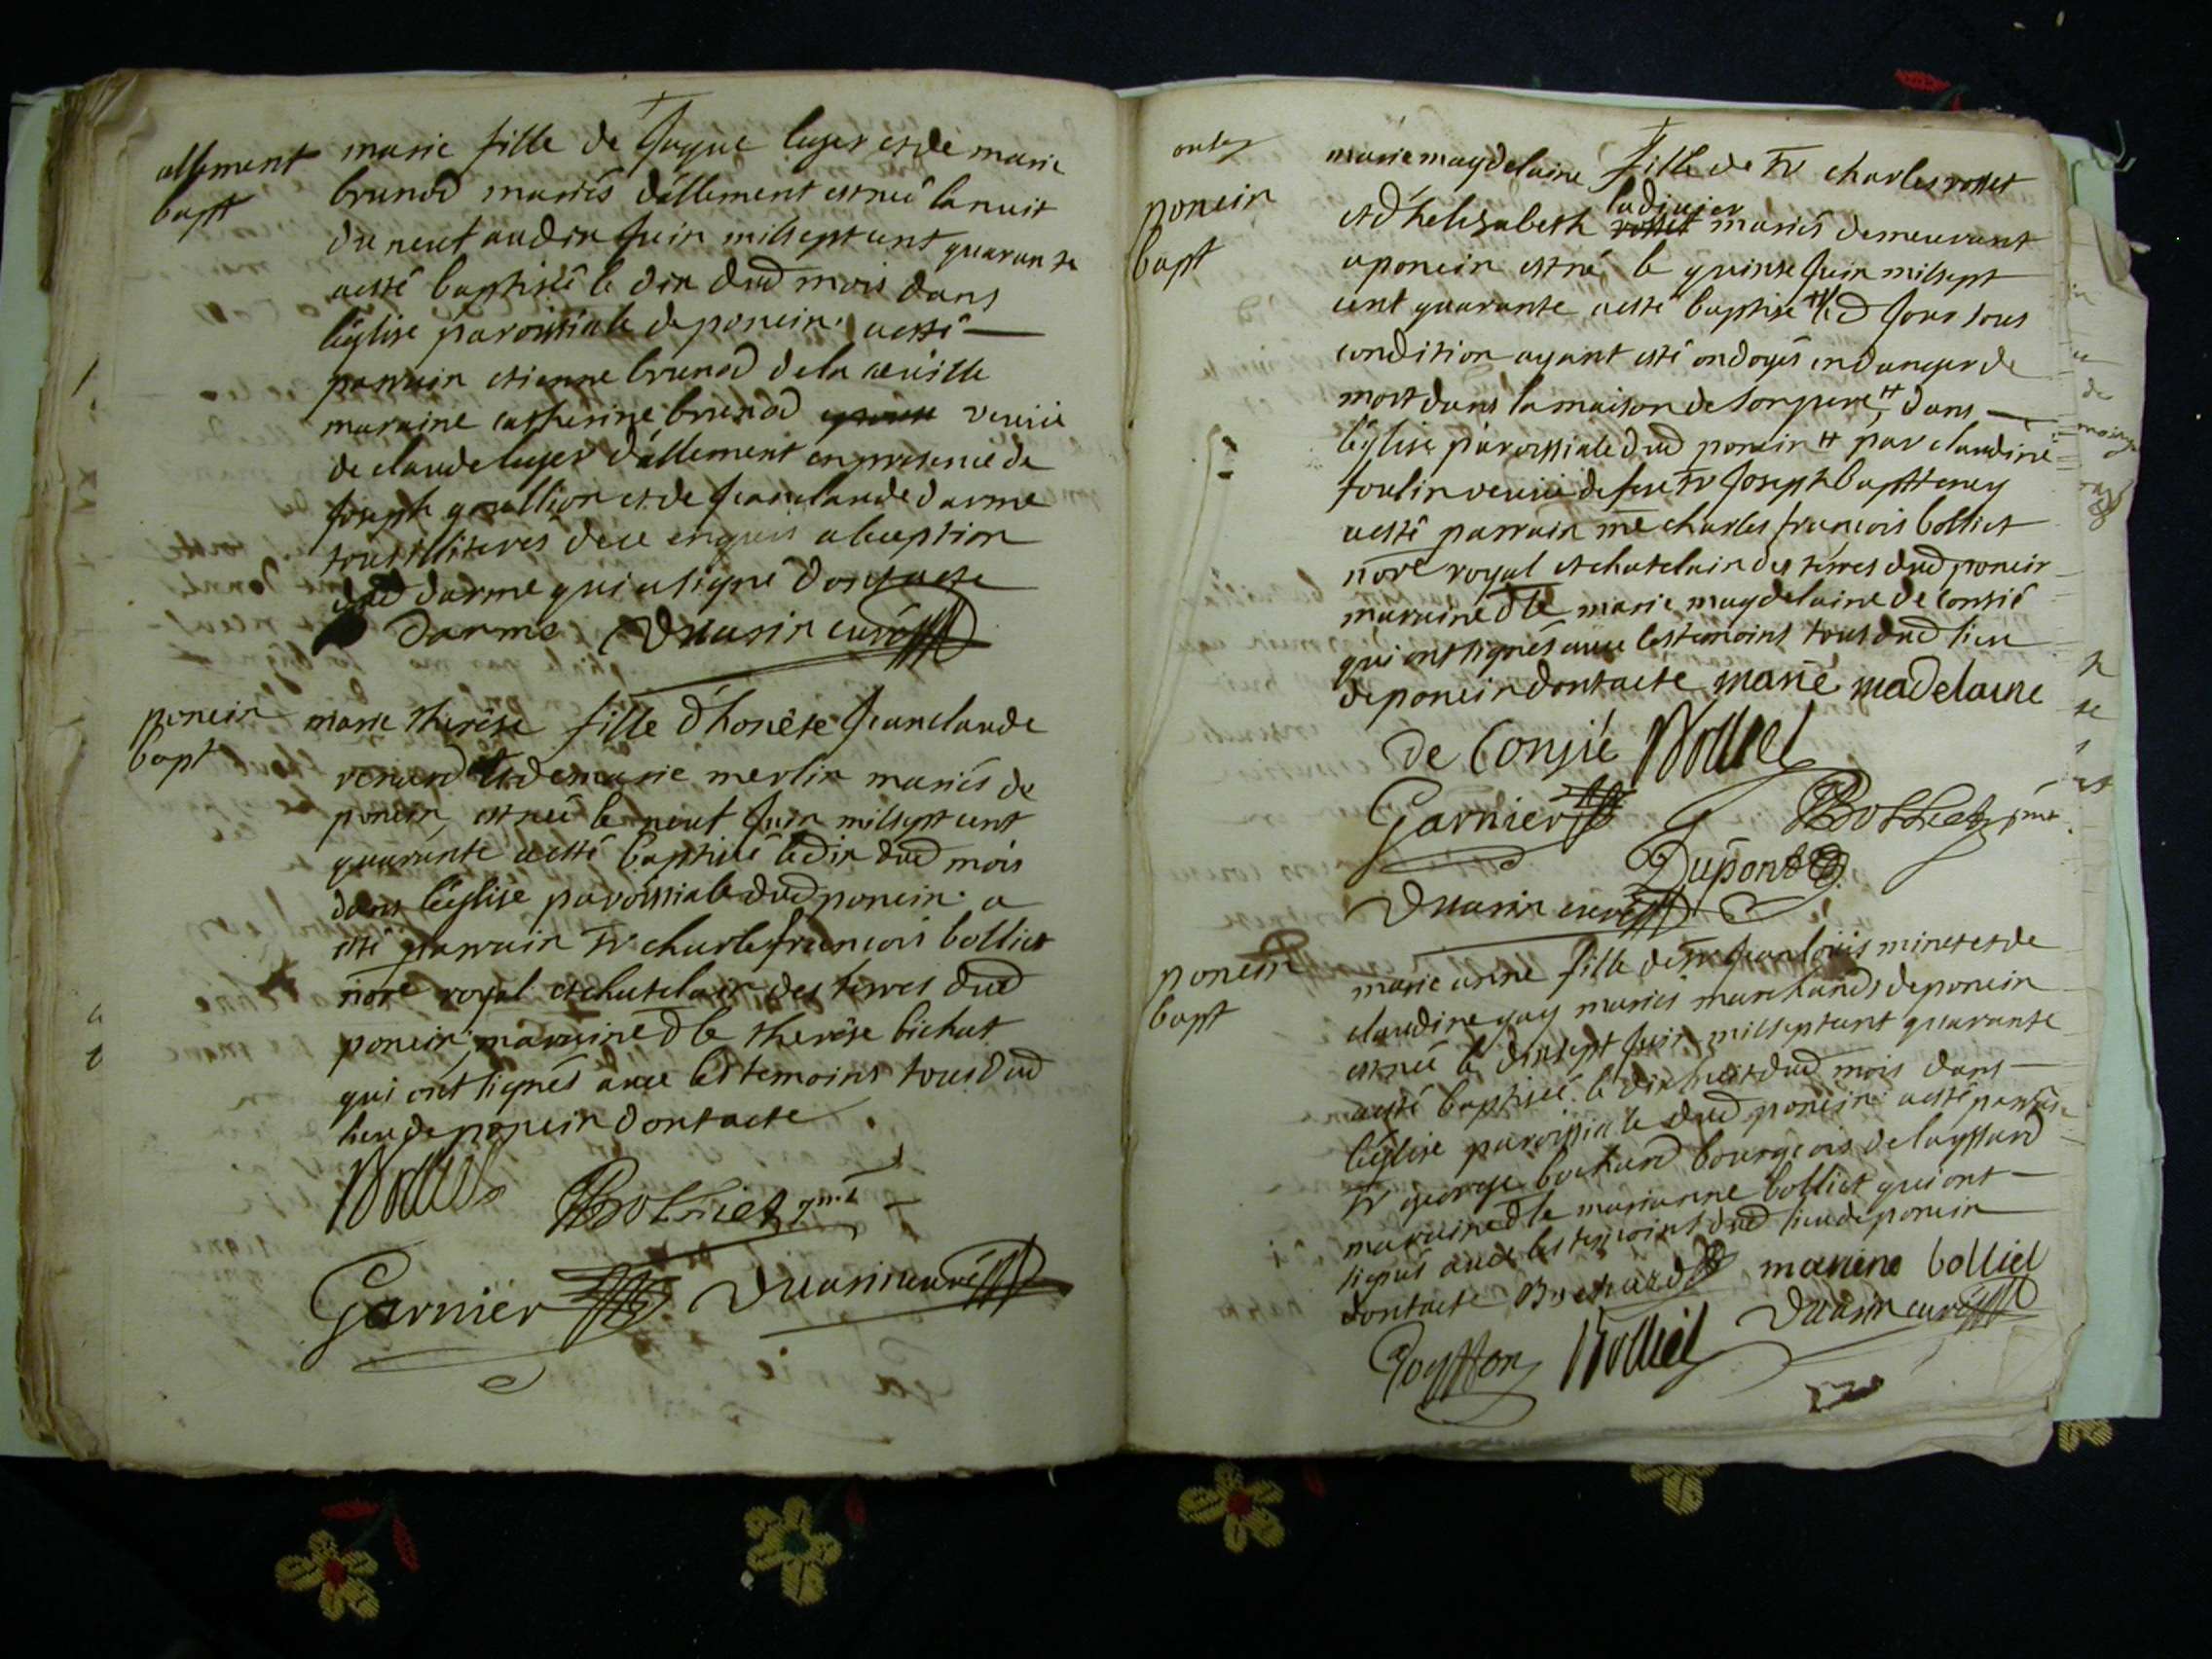 allement
bapt
marie fille de Jaque leger et de marie
brunod mariés d'allement est née la nuit
du neuf au dix Juin mil sept cent quarante
a esté baptisée le dix dud mois dans
l'église paroissiale de poncin. a esté
parrain etienne brunod de la
maraine catherine brunod veuve
de claude leger d'allement en presence de
Joseph goullion et de Jean claude darme
tous illiterés de ce enquis a l'exception
dud darme qui a signé dont acte
Darme Duasin curé
poncin
bapt
marie therèse fille d'honête Jean claude
renard et de marie merlin mariés de
poncin, est née le neuf Juin mil sept cent
quarante a esté baptisée le dix dud mois
dans l'église paroissiale dud poncin. a
esté parrain Sr charles francois bolliet
nore royal et chatelain des terres dud
poncin, maraine dlle therèse bichat
qui ont signés avec les temoins tous dud
lieu de poncin dont acte
Bolliet
Bolliet
Garnier Duasin curé
poncin
bapt
marie magdelaine fille de Sr charles rosset
ladivier
et d'helizabeth rosset mariés demeurant
a poncin est né le quinse Juin mil sept
cent quarante a esté baptisé led Jour sous
condition ayant esté ondoyés en danger de
mort dans la maison de son pere # dans
l'église paroissiale dud poncin # par claudine
foulin veuve de feu Sr Joseph bapt
a esté parrain me charles francois bolliet
nore royal et chatelain des terres dud poncin
maraine dlle marie magdelaine de Conzié
qui ont signés avec les temoins tous dud lieu
de poncin dont acte marie madelaine
de Conzié Bolliet
Garnier Bolliet
Dupont
Duasin curé
poncin
bapt
marie anne fille de Sr Jean loüis minet et de
claudine gay mariés marchands de poncin
est née le dix sept Juin mil sept cent quarante
a esté baptisée le dix huit dud mois dans
l'église paroissiale dud poncin. a esté parrain
Sr george bochard bourgeois de
maraine dlle marianne bolliet qui ont
signés avec les temoins dud lieu de poncin
dont acte Bochard mariene bolliet
Goyffon Bolliet Duasin curé